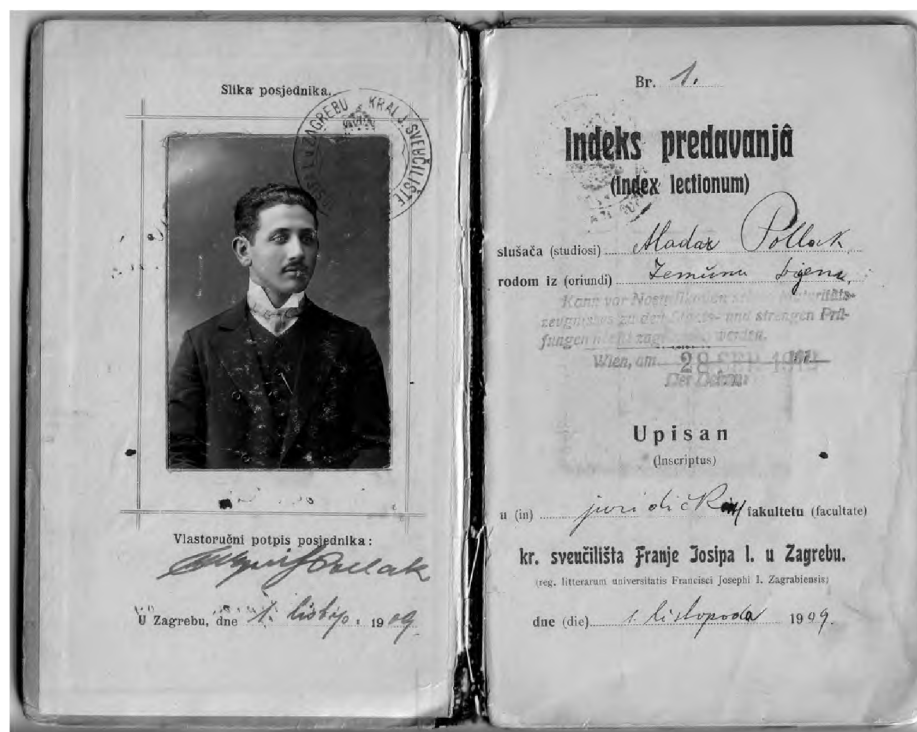 Slika posjednika.
KRALJ. SVEUČILIŠTE
U ZAGREBU
Vlastoručni potpis posjednika:
Pollak
U Zagrebu, dne 1. listop. 1909.
Br. 1.
Indeks predavanjâ
(Index lectionum)
slušača (studiosi) Aladar Pollak
rodom iz (oriundi) Zemuna
Kann vor Nostrifikation seines Maturitäts-
zeugnisses zu den Staats- und strengen Prü-
fungen nicht zugelassen werden.
Wien, am 28 SEP. 1910
Der Dekan:
Upisan
(Inscriptus)
u (in) juridičkom fakultetu (facultate)
kr. sveučilišta Franje Josipa I. u Zagrebu.
(reg. litterarum universitatis Francisci Josephi I. Zagrabiensis)
dne (die) 1. listopada 1909.